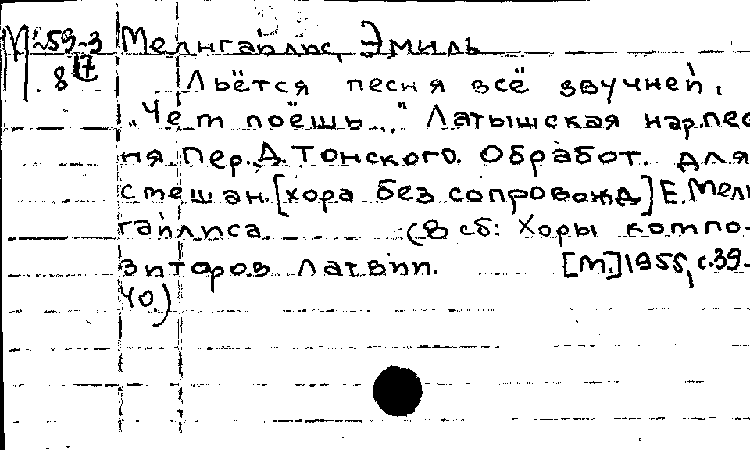 М 259-3 Мелнгайлис, Эмиль
8 Льётся песня всё звучней.
"Чем поёшь..." Латышская нар. пес
ня. Пер. Д. Тонского. Обработ. для
смешан. [хора без сопровожд] Е. Мелн
гайлиса. (В сб: Хоры компо-
зиторов Латвии. [М.] 1955, с. 39-
40.)